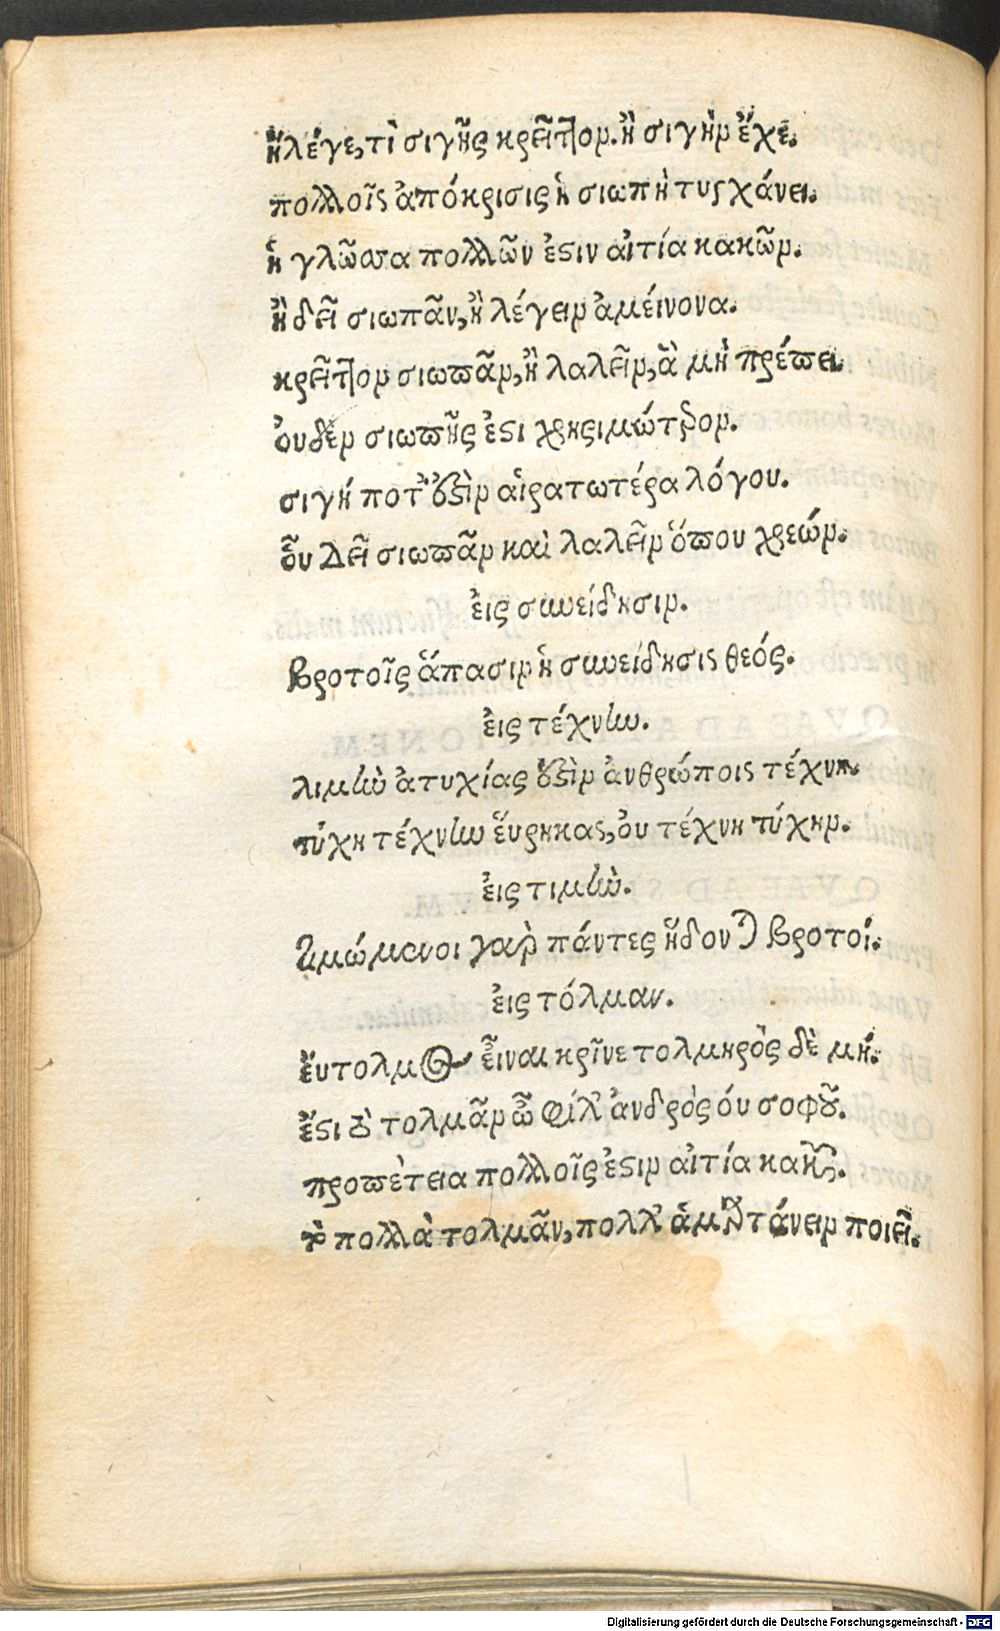 ἢ λέγε, τὶ σιγῆς κρεῖττον. ἢ σιγὴν ἔχε.
πολλοῖς ἀπόκρισις ἡ σιωπὴ τυγχάνει.
ἡ γλῶσσα πολλῶν ἐστιν αἰτία κακῶν.
ἢ δεῖ σιωπᾶν, ἢ λέγειν ἀμείνονα.
κρεῖττον σιωπᾶν, ἢ λαλεῖν, ἃ μὴ πρέπει.
ὀυδὲν σιωπῆς ἐστι χρησιμώτερον.
σιγή ποτ' ἐστὶν αἱρατωτέρα λόγου.
ὗυ δεῖ σιωπᾶν καὶ λαλεῖν ὅπου χρεών.
ἐις συνείδησιν.
βροτοῖς ἅπασιν ἡ συνείδησις θεός.
ἐις τέχνην.
λιμὴν ἀτυχίας ἐστὶν ἀνθρώποις τέχνη.
τύχη τέχνην ἕυρηκας, ὀυ τέχνη τύχην.
ἐις τιμὴν.
τιμώμενοι γαρ πάντες ἥδονται βροτοί.
ἐις τόλμαν.
ἔυτολμος εἶναι κρῖνε τολμηρὸς δὲ μή.
ἔστι τὸ τολμᾶν ὦ φίλ' ἀνδρὸς ὀυ σοφοῦ.
προπέτεια πολλοῖς ἐστιν αἰτία κακῶν.
τὸ πολλὰ τολμᾶν, πολλ' ἁμαρτάνειν ποιεῖ.
Digitalisierung gefördert durch die Deutsche Forschungsgemeinschaft - DFG